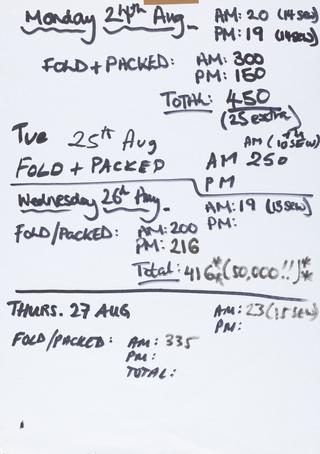 Monday 24th Aug. AM: 20 (14 sew)
PM: 19 (14 sew)
FOLD + PACKED: AM: 300
PM: 150
TOTAL: 450
(25 extra)
Tue 25th Aug AM (10 sew)
FOLD + PACKED AM 250
PM
Wednesday 26th Aug. AM: 19 (15 sew)
FOLD/PACKED: AM: 200 PM:
PM: 216
Total: 416 *(50,000!!)*
THURS. 27 AUG AM: 23 (15 sew)
PM:
FOLD/PACKED: AM: 335
PM:
TOTAL: